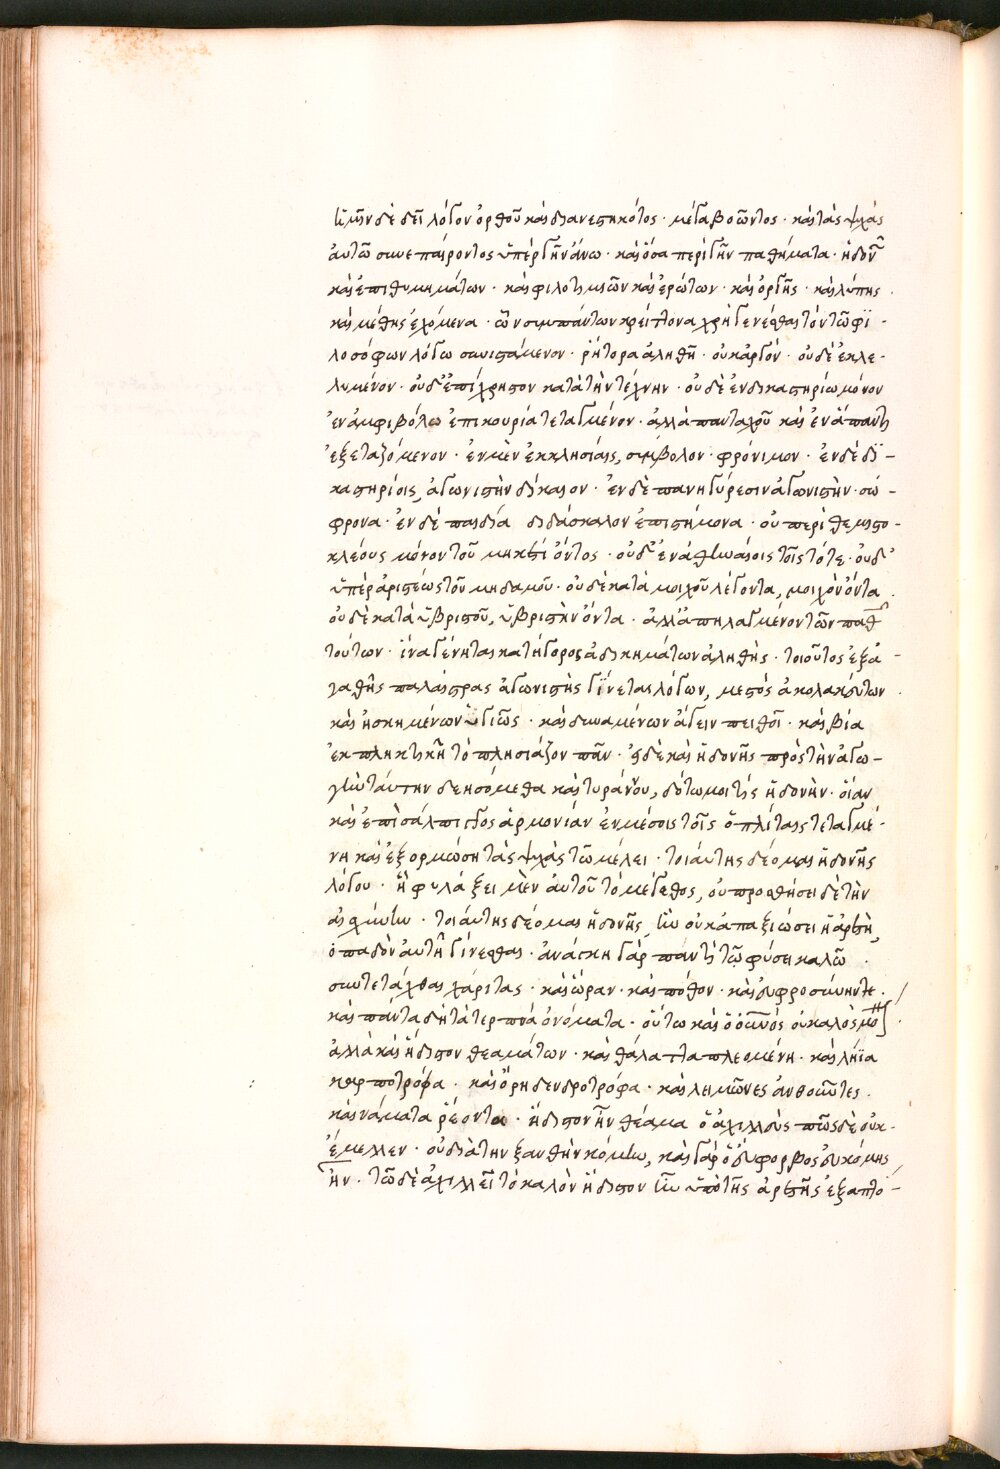 ἡμῖν δὲ δεῖ λόγου ὀρθοῦ καὶ διανεστηκότος · μέγα βοῶντος · καὶ τὰς ψυχὰς
αὐτῶ συνεπαίροντος ὑπὲρ γῆν ἄνω · καὶ ὅσα περὶ γῆν παθήματα · ἡδονῆς
καὶ ἐπιθυμημάτων · καὶ φιλοτιμιῶν καὶ ἐρώτων · καὶ ὀργῆς · καὶ λύπης ·
καὶ μέθης ἐχόμενα · ὧν συμπάντων κρείττονα χρὴ γενέσθαι τὸν τῶ φϊ-
λοσόφων λόγω συνιστάμενον · ῥήτορα ἀληθῆ · οὐκ ἀργὸν · οὐδὲ ἐκλε-
λυμένον · οὐδ' ἐπίχρηστον κατὰ τὴν τέχνην · οὐδὲ ἐν δικαστηρίω μόνον
ἐν ἀμφιβόλω ἐπικουρία τεταγμένον · ἀλλὰ πανταχοῦ καὶ ἐν ἅπαντι
ἐξεταζόμενον · ἐν μὲν ἐκκλησίαις, σύμβολον · φρόνιμον · ἐν δὲ δϊ-
καστηρίοις, ἀγωνιστὴν δίκαιον · ἐν δὲ πανηγύρεσιν ἀγωνιστὴν · σώ-
φρονα · ἐν δὲ παιδία διδάσκαλον ἐπιστήμονα · οὐ περὶ θεμιστο-
κλέους μόνον τοῦ μηκέτι ὄντος · οὐδ' ἐν ἀθηναίοις τοῖς τότε · οὐδ'
ὑπὲρ ἀριστέως τοῦ μηδαμοῦ · οὐδὲ κατὰ μοιχοῦ λέγοντα, μοιχὸν ὄντα ·
οὐδὲ κατὰ ὑβριστοῦ, ὑβριστὴν ὄντα · ἀλλ' ἀπηλαγμένον τῶν παθῶν
τούτων · ἵνα γένηται κατήγορος ἀδικημάτων ἀληθής · τοιοῦτος ἐξ ἀ-
γαθῆς παλαίστρας ἀγωνιστὴς γΐνεται λόγων, μεστὸς ἀκολακεύτων ·
καὶ ἠσκημένων ὑγιῶς · καὶ δυναμένων ἄγειν πειθοῖ · καὶ βία
ἐκπληκτικῆ τὸ πλησιάζον πᾶν · εἰ δὲ καὶ ἡδονῆς πρὸς τὴν ἀγω-
γὴν ταύτην δεησόμεθα καὶ τυράννου, δότω μοι τίς ἡδονὴν · οἵαν
καὶ ἐπὶ σάλπιγγος ἁρμονίαν ἐν μέσοις τοῖς ὁπλίταις τεταγμέ-
νη καὶ ἐξορμώση τὰς ψυχὰς τῶ μέλει · τοιαύτης δέομαι ἡδονῆς
λόγου · ἣ φυλάξει μὲν αὐτοῦ τὸ μέγεθος, οὐ προσθήσει δὲ τὴν
αἰσχύνην · τοιαύτης δέομαι ἡδονῆς, ἣν οὐκ ἀπαξιώσει ἡ ἀρετὴ,
ὀπαδὸν αὐτῆ γίνεσθαι · ἀνάγκη γὰρ παντὶ τῶ φύσει καλῶ ·
συντετάχθαι χάριτας · καὶ ὥραν · καὶ πόθον · καὶ εὐφροσύνην τε ·
καὶ πάντα δὴ τὰ τερπνὰ ὀνόματα · οὕτω καὶ ὁ οὐρανὸς οὐ καλὸς μόνον
ἀλλὰ καὶ ἥδιστον θεαμάτων · καὶ θάλαττα πλεομένη · καὶ λήϊα
καρποτρόφα · καὶ ὄρη δενδροτρόφα · καὶ λειμῶνες ἀνθοῦντες ·
καὶ νάματα ῥέοντα · ἥδιστον ἦν θέαμα ὁ ἀχιλλεὺς πῶς δὲ οὐκ-
ἔμελλεν · οὐ διὰ τὴν ξανθὴν κόμην, καὶ γὰρ ὁ εὔφορβος εὔκομης
ἦν · τῶ δὲ ἀχιλλεῖ τὸ καλὸν ἥδιστον ἦν ὑπὸ τῆς ἀρετῆς ἐξαπτό-